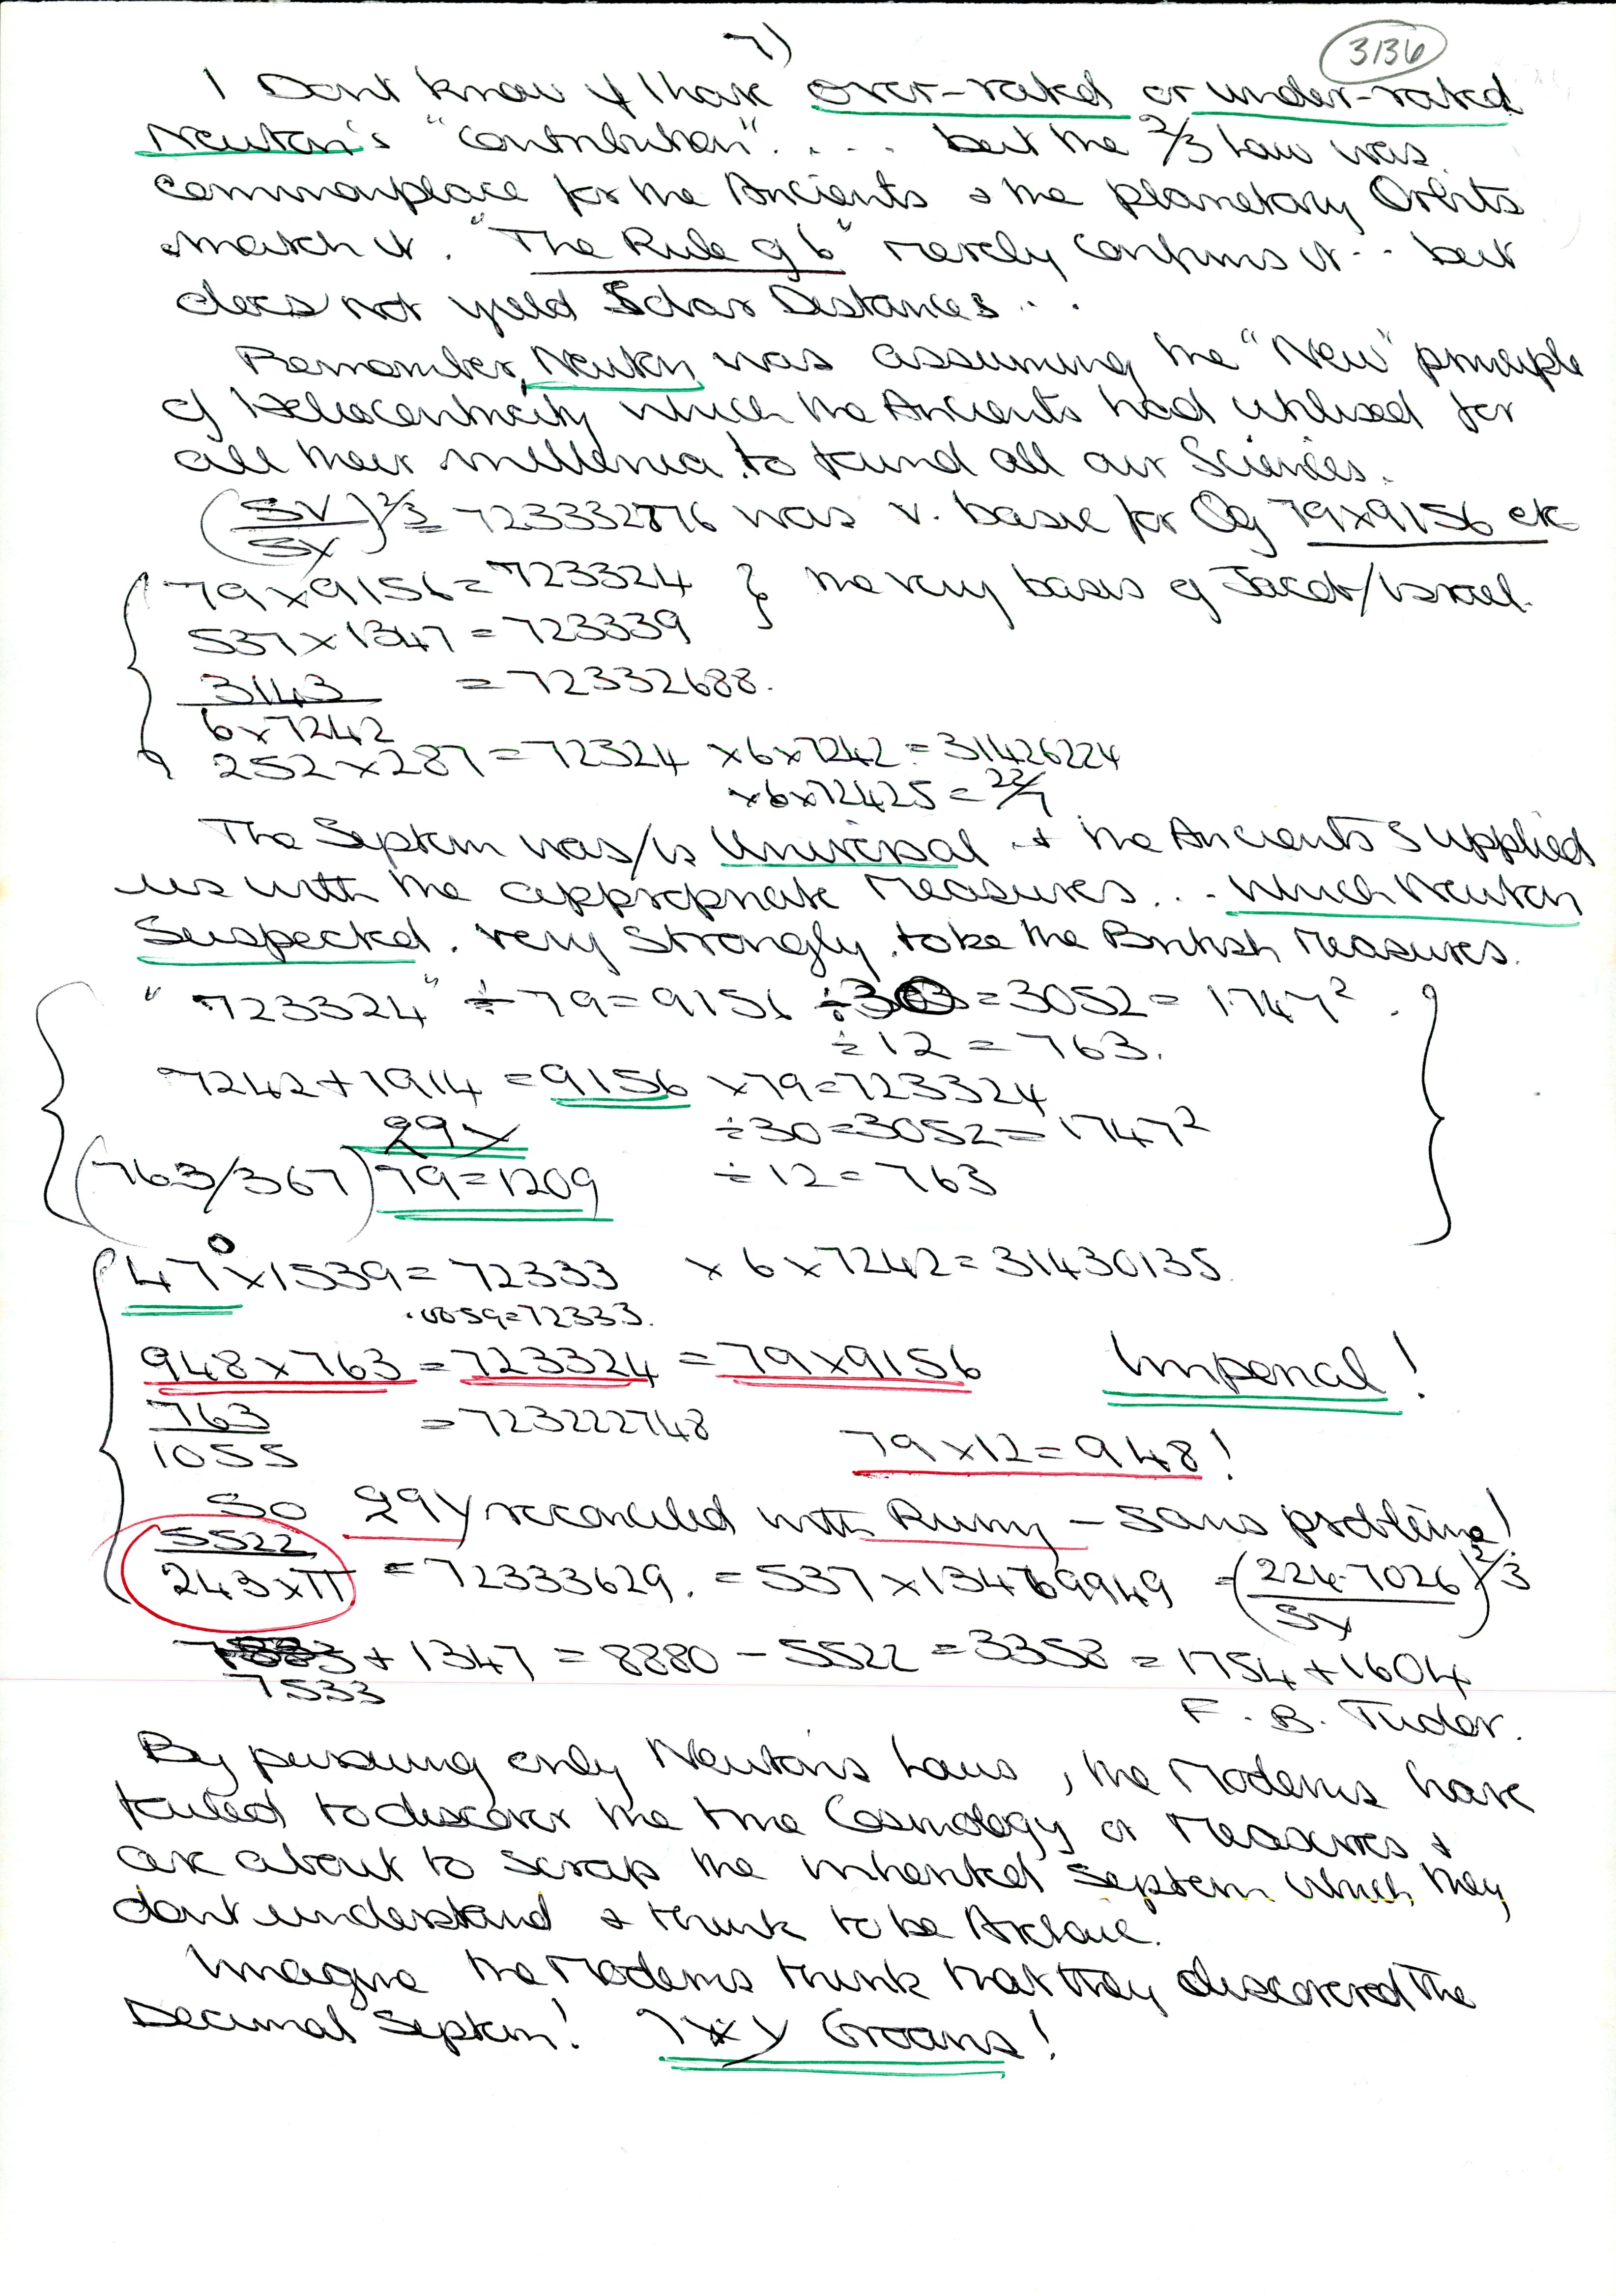 7)
3136
I Dont know if I have over-rated or under-rated
Newton's "Contribution".... but the 2/3 Law was
Commonplace for the Ancients & the planetary Orbits
match it. "The Rule of 6" merely confirms it... but
does not yield Solar Distances...
Remember, Newton was assuming the "New" principle
of Heliocentricity which the Ancients had utilised for
all their millennia to found all our Sciences.
(SV/SY)^2/3 = 723332776 was v. basic for Og 79x9156 etc
79 x 9156 = 723324 } the very basis of Jacob/Israel.
537 x 1347 = 723339
3143 = 72332688.
6x7242
252 x 287 = 72324 x6x7242 = 31426224
x6x72425 = 22/7
The System was/is Universal & the Ancients Supplied
us with the appropriate Measures... which Newton
Suspected, very strongly, to be the British Measures.
"723324" ÷ 79 = 9156 ÷ 30 = 3052 = 1.747².
÷ 12 = 763.
7242 + 1914 = 9156 x79=723324
99Y ÷30=3052=1747²
(763/367) 79=1209 ÷12=763
47° x 1539 = 72333 x 6 x 7242 = 31430135.
948 x 763 = 723324 = 79x9156 Imperial!
763 = 723222748
1055 79 x12 = 948!
So 99Y reconciled with - sans problème!
5522
243xπ = 72333629. = 537 x 134769949 = (224.7026/SY)^2/3
+ 1347 = 8880 - 5522 = 3358 = 1754 + 1604
7533 F. B. Tudor.
By pursuing only Newton's Laws, the Moderns have
failed to discover the true Cosmology or Measures &
are about to scrap the inherited System which they
dont understand & think to be Archaic.
Imagine the Moderns think that they discovered the
Decimal System! Groans!